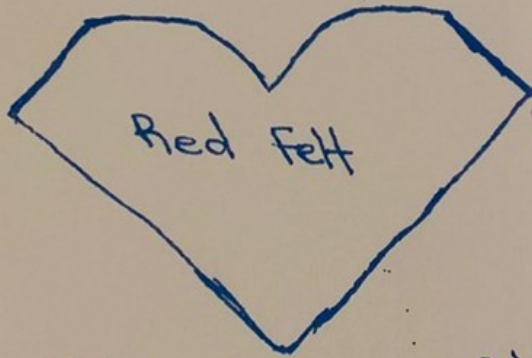 Red Felt